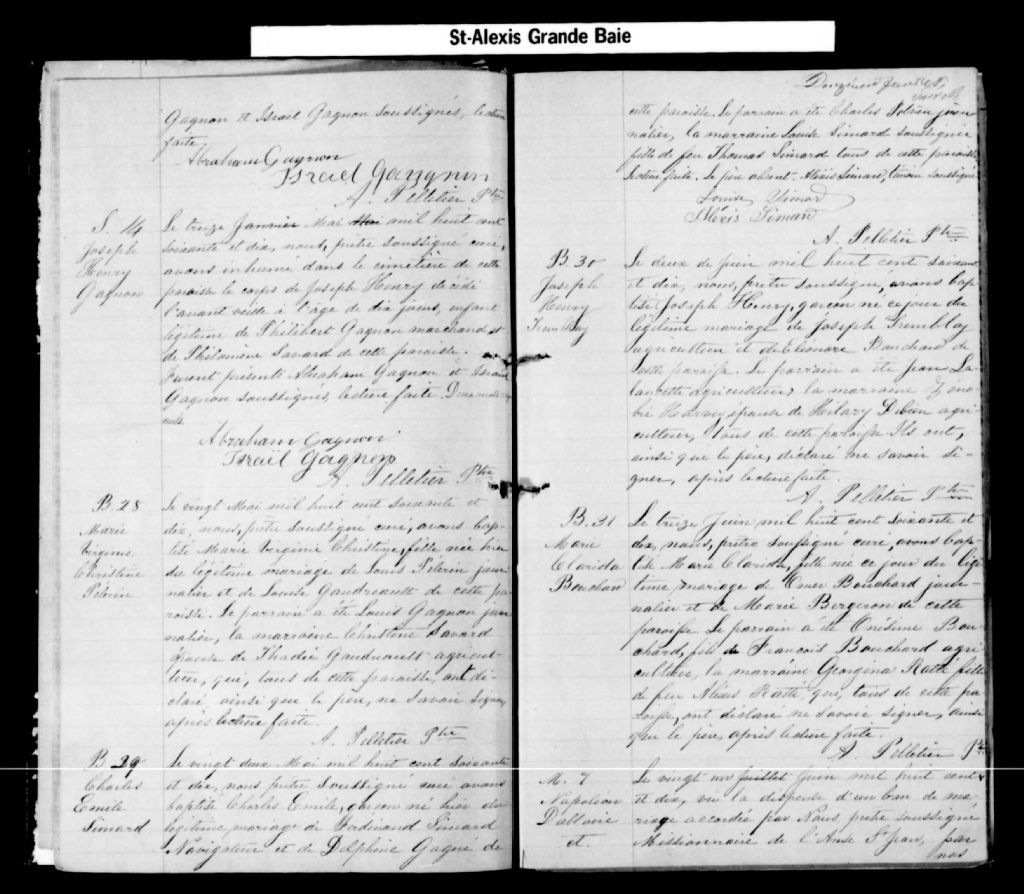 St-Alexis Grande Baie
Gagnon et Israel Gagnon soussignés, lecture
faite.
Abraham Gagnon
Israel Gagnon
A. Pelletier Ptre
S. 14
Joseph
Henry
Gagnon
Le treize Janvier Mai Mai mil huit cent
soixante et dix, nous, prêtre soussigné curé,
avons inhumé dans le cimetière de cette
paroisse le corps de Joseph Henry décédé
l'avant veille à l'âge de dix jours, enfant
légitime de Philibert Gagnon marchand et
de Philomène Savard de cette paroisse.
Furent présents Abraham Gagnon et Israel
Gagnon soussignés, lecture faite. Deux mots
nuls.
Abraham Gagnon
Israël Gagnon
A. Pelletier Ptre
B. 28
Marie
Virginie
Christine
Pelerin
Le vingt Mai mil huit cent soixante et
dix, nous, prêtre soussigné curé, avons bap-
tisé Marie Virginie Christine, fille née hier
du légitime mariage de Louis Pelerin jour
nalier et de Louise Gaudreault de cette pa
roisse. Le parrain a été Louis Gagnon jour
nalier, la marraine Christine Savard
épouse de Thadée Gaudreault agricul-
teur, qui, tous de cette paroisse, ont dé-
claré, ainsi que le père, ne savoir signer,
après lecture faite.
A. Pelletier Ptre
B. 29
Charles
Emile
Simard
Le vingt deux Mai mil huit cent soixante
et dix, nous prêtre soussigné curé avons
baptisé Charles Emile, garçon né hier du
légitime mariage de Ferdinand Simard
Navigateur et de Delphine Gagné de
Douzième feuillet
cette paroisse. Le parrain a été Charles Potvin jour
nalier, la marraine Louise Simard soussignée
fille de feu Thomas Simard tous de cette paroisse
lecture faite. Le père absent. Alexis Simard, témoin soussigné
Louise Simard
Alexis Simard
A. Pelletier Ptre
B. 30
Joseph
Henry
Tremblay
Le deux de juin mil huit cent soixante
et dix, nous, prêtre soussigné, avons bap
tisé Joseph Henry, garçon né ce jour du
légitime mariage de Joseph Tremblay
agriculteur et de Eléonore Bouchard de
cette paroisse. Le parrain a été Jean La-
lancette agriculteur, la marraine Zéno
bie Harvey, épouse de Hilary Dubien agri-
culteur, tous de cette paroisse. Ils ont,
ainsi que le père, déclaré ne savoir si-
gner, après lecture faite.
A. Pelletier Ptre
B. 31
Marie
Clarida
Bouchard
Le treize Juin mil huit cent soixante et
dix, nous, prêtre soussigné curé, avons bap
tisé Marie Clarida, fille née ce jour du légi
time mariage de Omer Bouchard jour-
nalier et de Marie Bergeron de cette
paroisse. Le parrain a été Onésime Bou-
chard, fils de François Bouchard agri-
culteur, la marraine Georgina Ratté fille
de feu Alexis Ratté, qui, tous de cette pa
roisse, ont déclaré ne savoir signer, ainsi
que le père, après lecture faite.
A. Pelletier Ptre
M. 7
Napoléon
Dallaire
et
Le vingt un juillet Juin mil huit cent
et dix, vu la dispense d'un ban de ma-
riage accordée par Nous prêtre soussigné
Missionnaire de l'Anse St Jean, par
nos